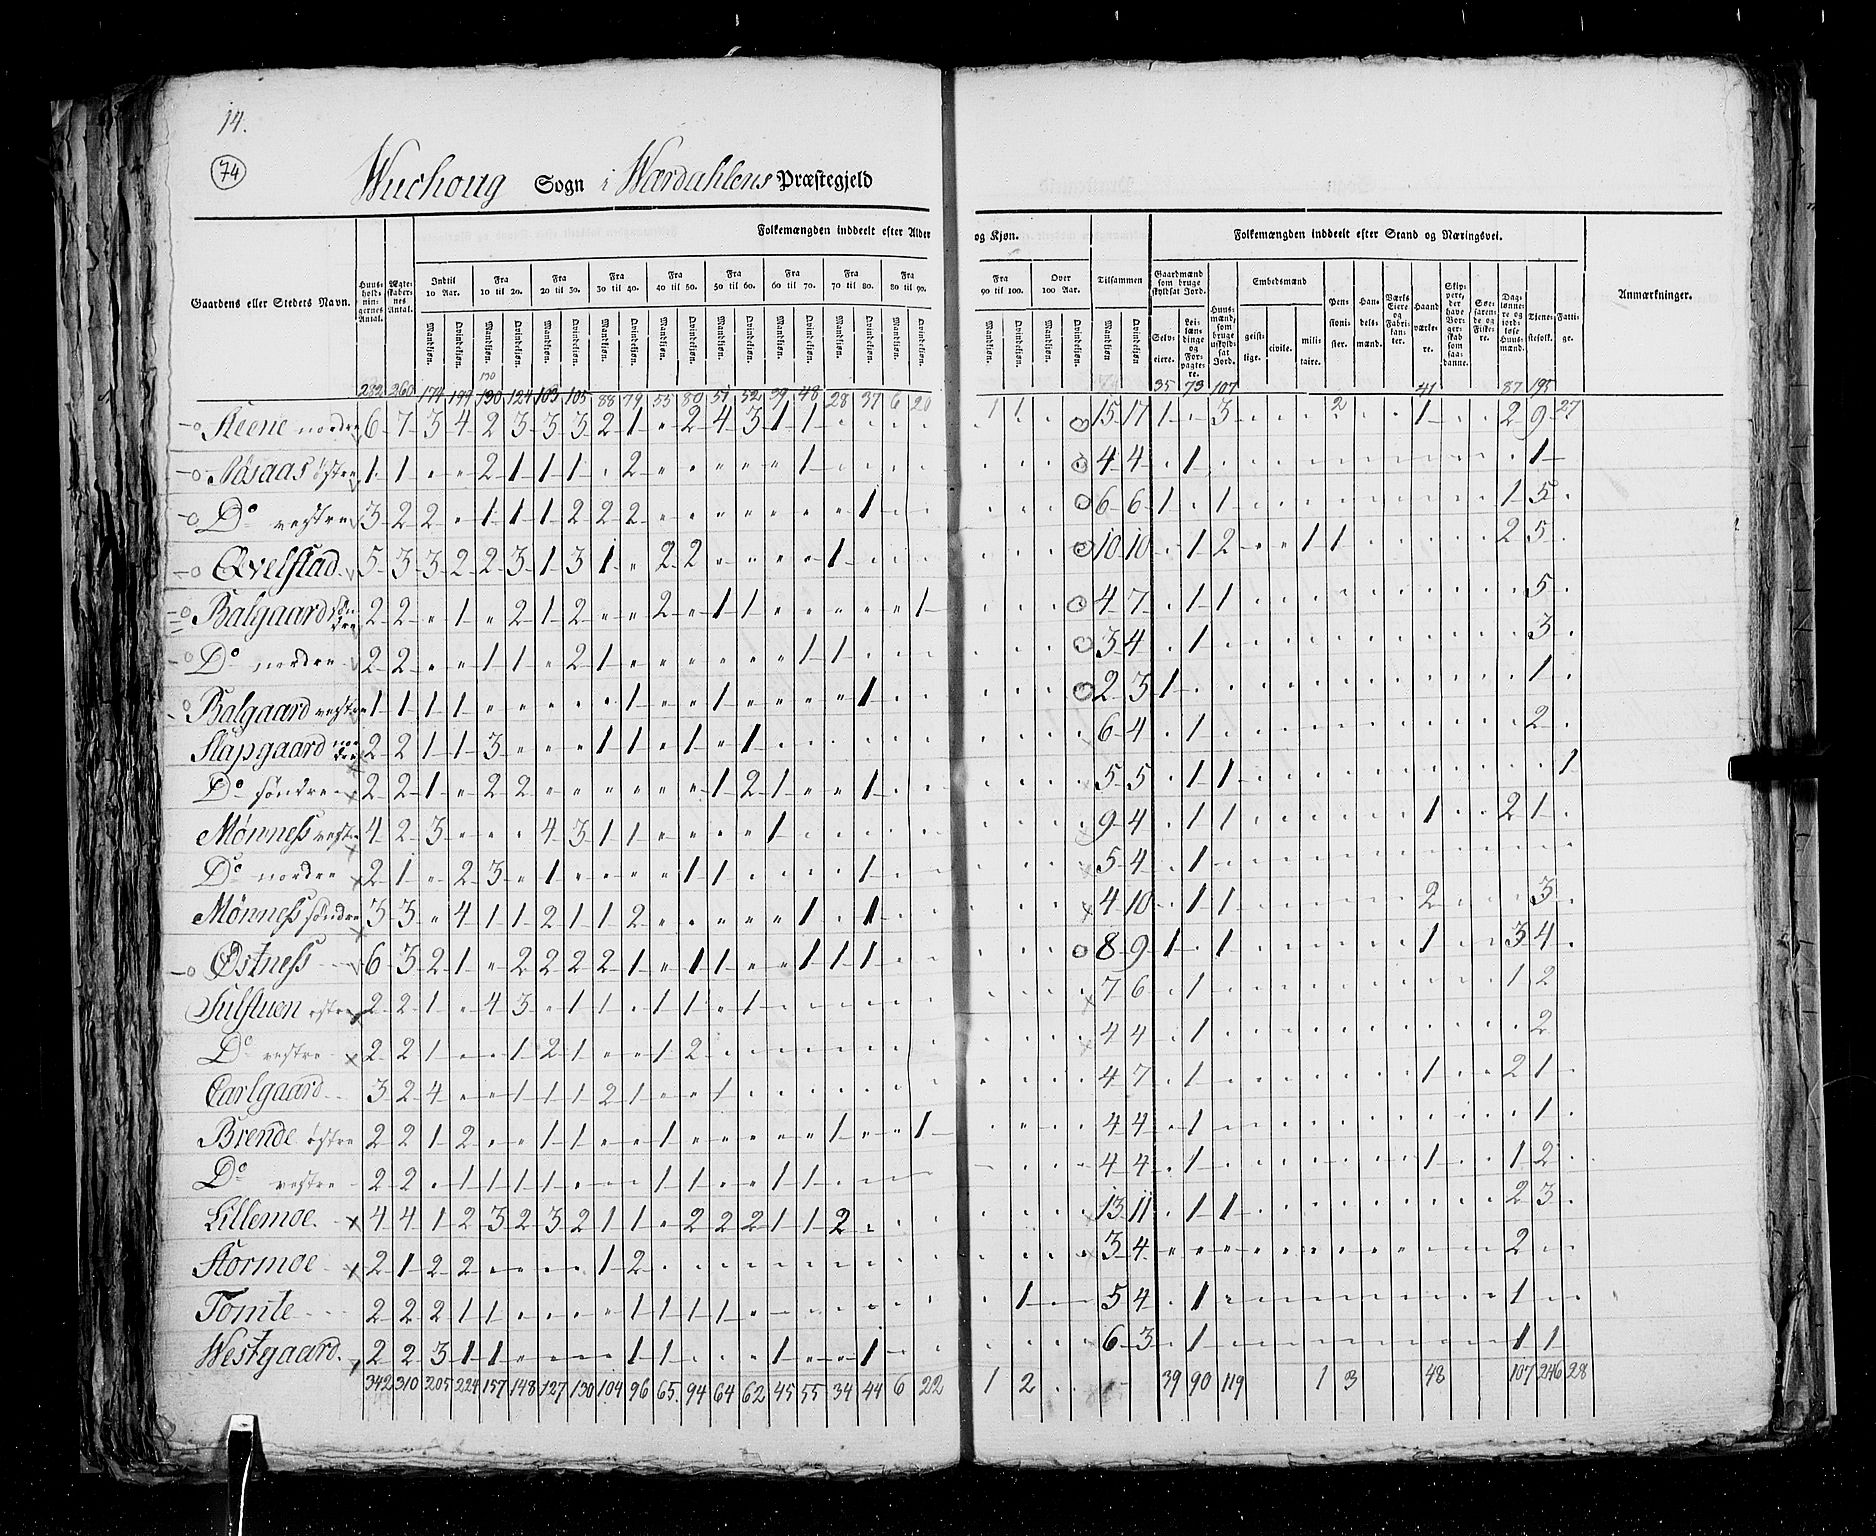 14.
74
Wuchoug Sogn i Wærdahlens Præstegjeld
Folkemængden inddeelt efter Alder og Kjøn.
Folkemængden inddeelt efter Stand og Næringsvei.
Gaardens eller Stedets Navn. Huus-hold-nin-gernes Antal. Ægte-skaber-nes Antal. Indtil 10 Aar. Fra 10 til 20. Fra 20 til 30. Fra 30 til 40. Fra 40 til 50. Fra 50 til 60. Fra 60 til 70. Fra 70 til 80. Fra 80 til 90. Fra 90 til 100. Over 100 Aar. Tilsammen
Gaardmænd som bruge skyldsat Jord. Huus-mænd, som bruge uskyld-sat Jord. Embedsmænd Pen-sioni-ster. Han-dels-mænd. Værks Eiere og Fabri-kan-ter. Haand værke-re. Skip-pere, der have Bor-ger-skab som saa-danne. Søe-faren-de og Fiske-re. Dag-lønne-re og jord-løse Huus-mænd. Tjene-stefolk. Fatti-ge. Anmærkninger.
Mandkjøn. Qvindekjøn. Mandkjøn. Qvindekjøn. Mandkjøn. Qvindekjøn. Mandkjøn. Qvindekjøn. Mandkjøn. Qvindekjøn. Mandkjøn. Qvindekjøn. Mandkjøn. Qvindekjøn. Mandkjøn. Qvindekjøn. Mandkjøn. Qvindekjøn. Mandkjøn. Qvindekjøn. Mandkjøn. Qvindekjøn. Mandkjøn. Qvindekjøn Selv-eiere. Lei-læn-dinge og For-pagte-re. geist-lige. civile. mili-taire.
282 260 174 199 130 124 103 105 88 79 55 80 51 52 39 48 28 37 6 20 1 1 35 73 107 2 41 87 195 27
Steene nordre 6 7 3 4 2 3 3 3 2 1 " 2 4 3 1 1 15 17 1 3 1 2 9
Aasaas østre 1 1 " " 2 1 1 1 . 2 " " " " " 1 4 4 . 1 1
Do vestre 3 2 2 . 1 1 1 2 2 2 " " " " " " " 1 6 6 1 . 1 1 5
Qvelstad 5 3 3 2 2 3 1 3 1 " 2 2 " " " " 1 10 10 . 1 2 1 1 2 5
Balgaard søndre 2 2 " 1 " 2 1 2 " " 2 " 1 1 " " " " " 1 4 7 . 1 1 5
Do nordre 2 2 " " 1 1 " 2 1 " " " " " " 1 1 3 4 . 1 3
Balgaard vestre 1 1 1 1 " " " " " 1 " " 1 " " " " 1 2 3 1 1
Slapgaard nordre 2 2 1 1 3 " " " 1 1 " 1 " 1 6 4 . 1 2
Do søndre 2 2 1 " 2 2 " " " " " " 1 2 1 " " 1 5 5 . 1 1 1
Mønness vestre 4 2 3 " " " 4 3 1 1 " " " " 1 9 4 . 1 1 1 2 1
Do nordre 2 1 " 2 3 " 1 " " " " 1 1 " " " " 1 5 4 . 1
Mønness søndre 3 3 " 4 1 1 2 1 1 2 " " " " " 1 . 1 4 10 . 1 1 2 3
Østness 6 3 2 1 " 2 2 2 2 1 " 1 1 " " 1 1 1 8 9 1 . 1 1 3 4
Julstuen østre 2 2 1 " 4 3 " 1 1 " 1 1 " 1 7 6 . 1 1 2
Do vestre 2 2 1 " " 1 2 1 " " 1 2 4 4 . 1 2
Carlgaard 3 2 4 " " 1 1 1 2 1 " " 1 4 7 . 1 1 2 1
Brende østre 2 2 1 2 " " 1 1 " " 1 " " " " " 1 " " 1 4 4 . 1 1
Do vestre 2 2 " 1 1 1 1 " " " 1 1 " " 1 1 4 4 . 1 1 1 2
Lillemoe 4 4 1 2 3 2 3 2 1 1 " 2 2 2 1 1 2 13 11 . 1 1 2 3
Stormoe 2 1 2 2 " " " " 1 2 3 4 2
Tomte 2 2 2 1 1 " " " " 1 1 1 1 1 5 4 . 1 1
Westgaard 2 2 3 1 1 " " " " 1 1 " " " 1 " " 1 6 3 . 1 1 1
342 310 205 224 157 148 127 130 104 96 65 94 64 62 45 55 34 44 6 22 1 2 39 90 119 1 3 48 107 246 28